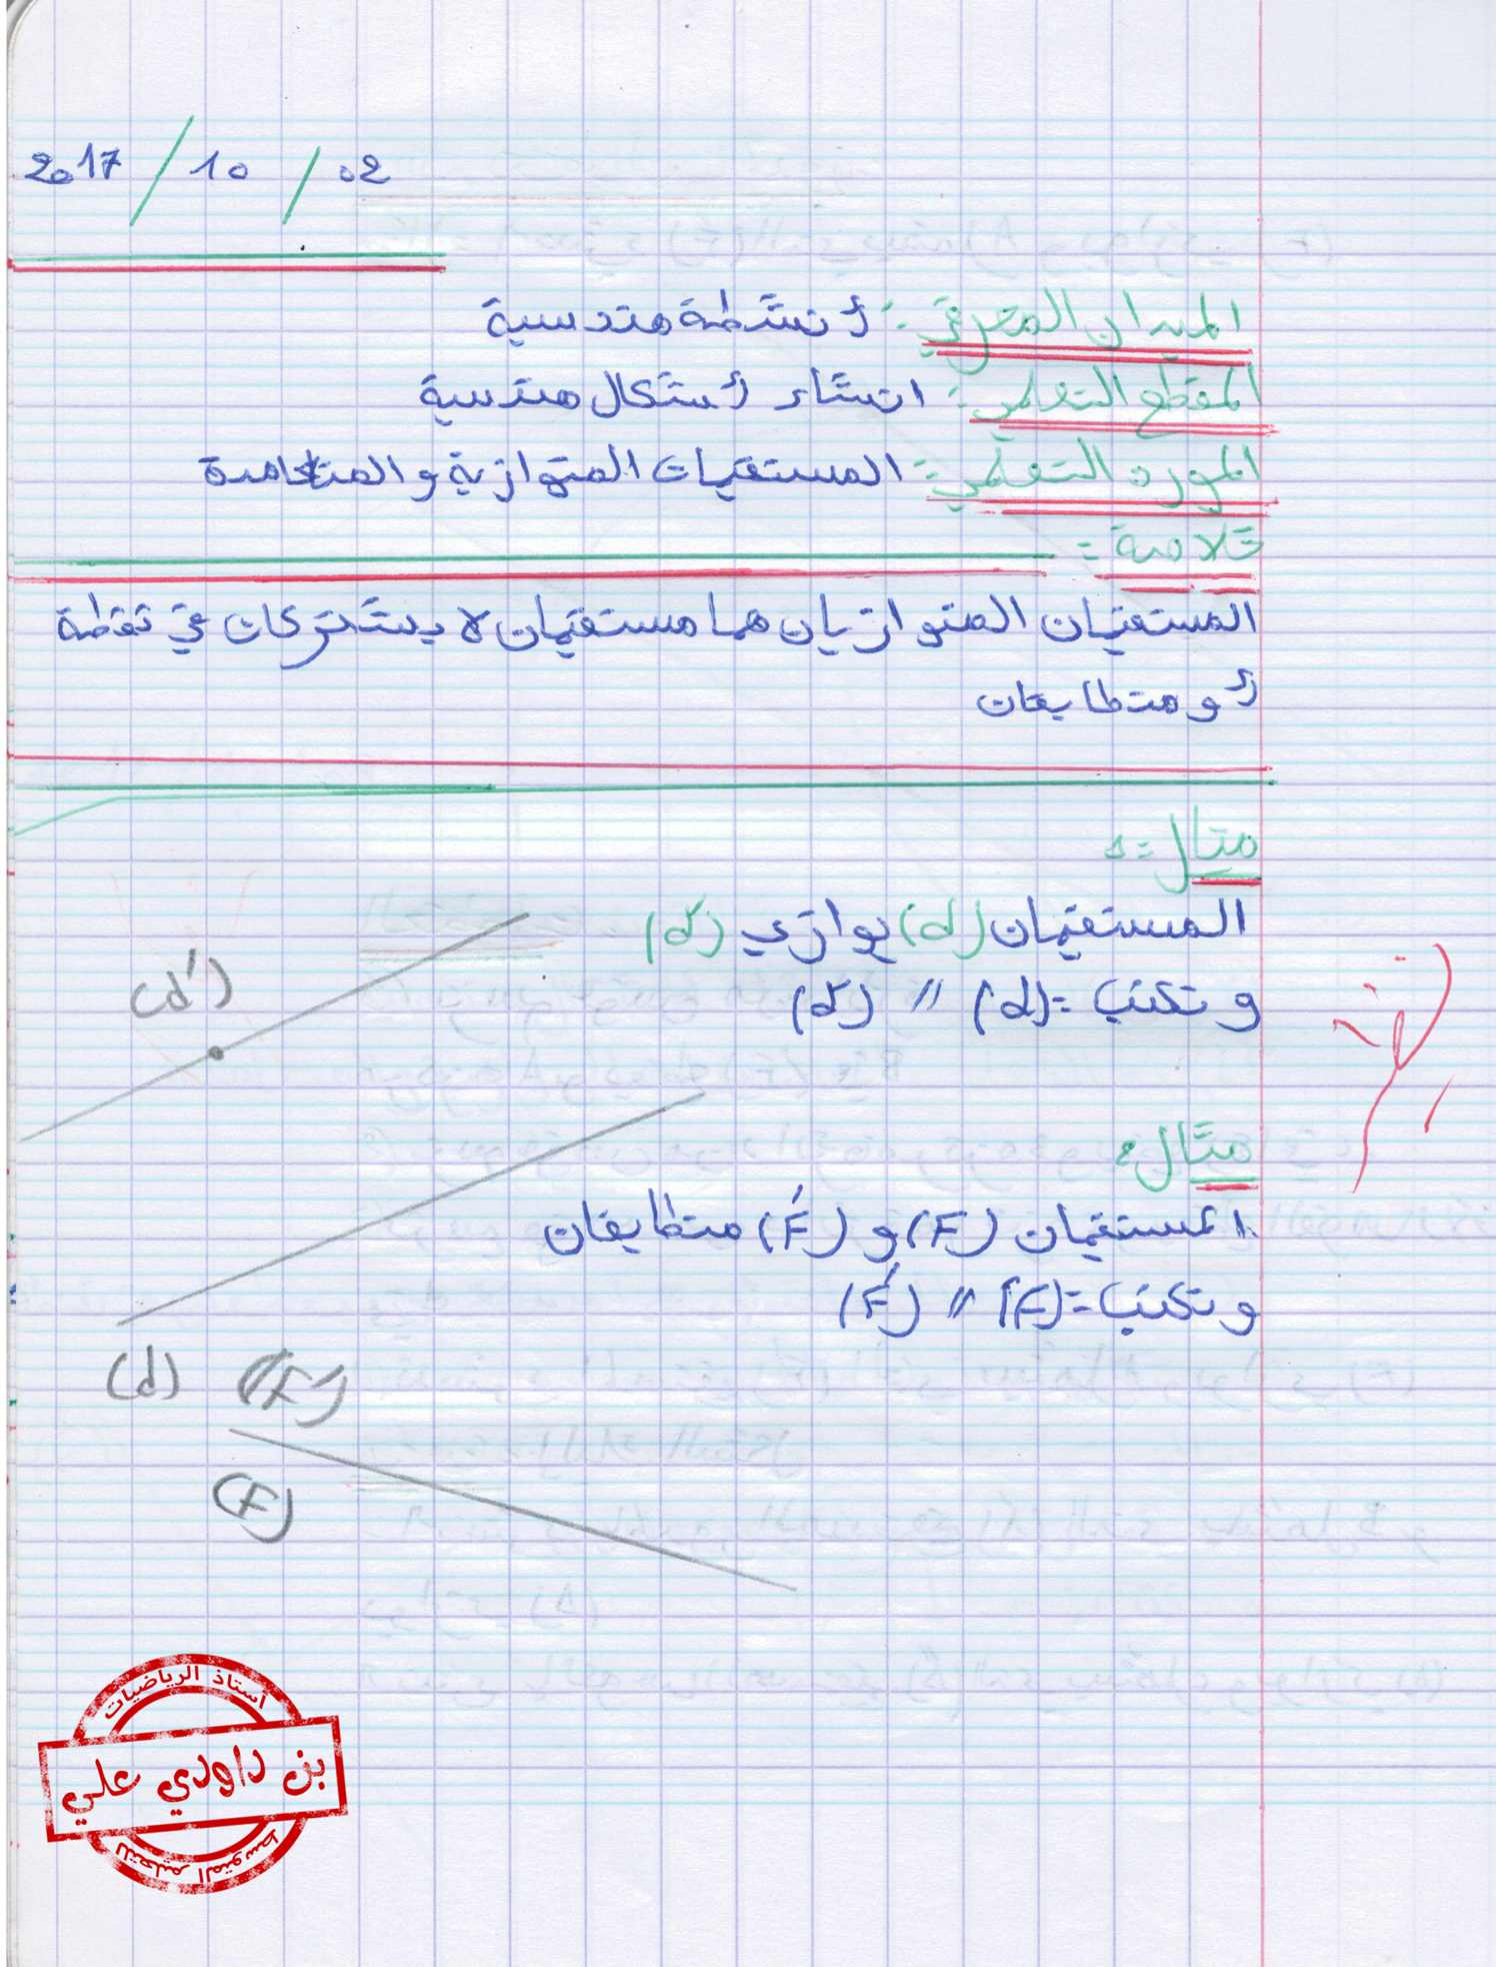 2017 / 10 / 02
الميدان المعرفي: أنشطة هندسية
المقطع التعلمي: انشاء أشكال هندسية
المورد التعلمي: المستقيمات المتوازية و المتعامدة
خلاصة:
المستقيمان المتوازيان هما مستقيمان لا يشتركان في نقطة
أو متطابقان
مثال:
المستقيمان (d) يوازي (d')
و نكتب: (d) // (d')
(d')
مثال:
المستقيمان (F) و (F') متطابقان
و نكتب: (F) // (F')
(d) (F')
(F)
أستاذ الرياضيات
بن داودي علي
للتعليم المتوسط